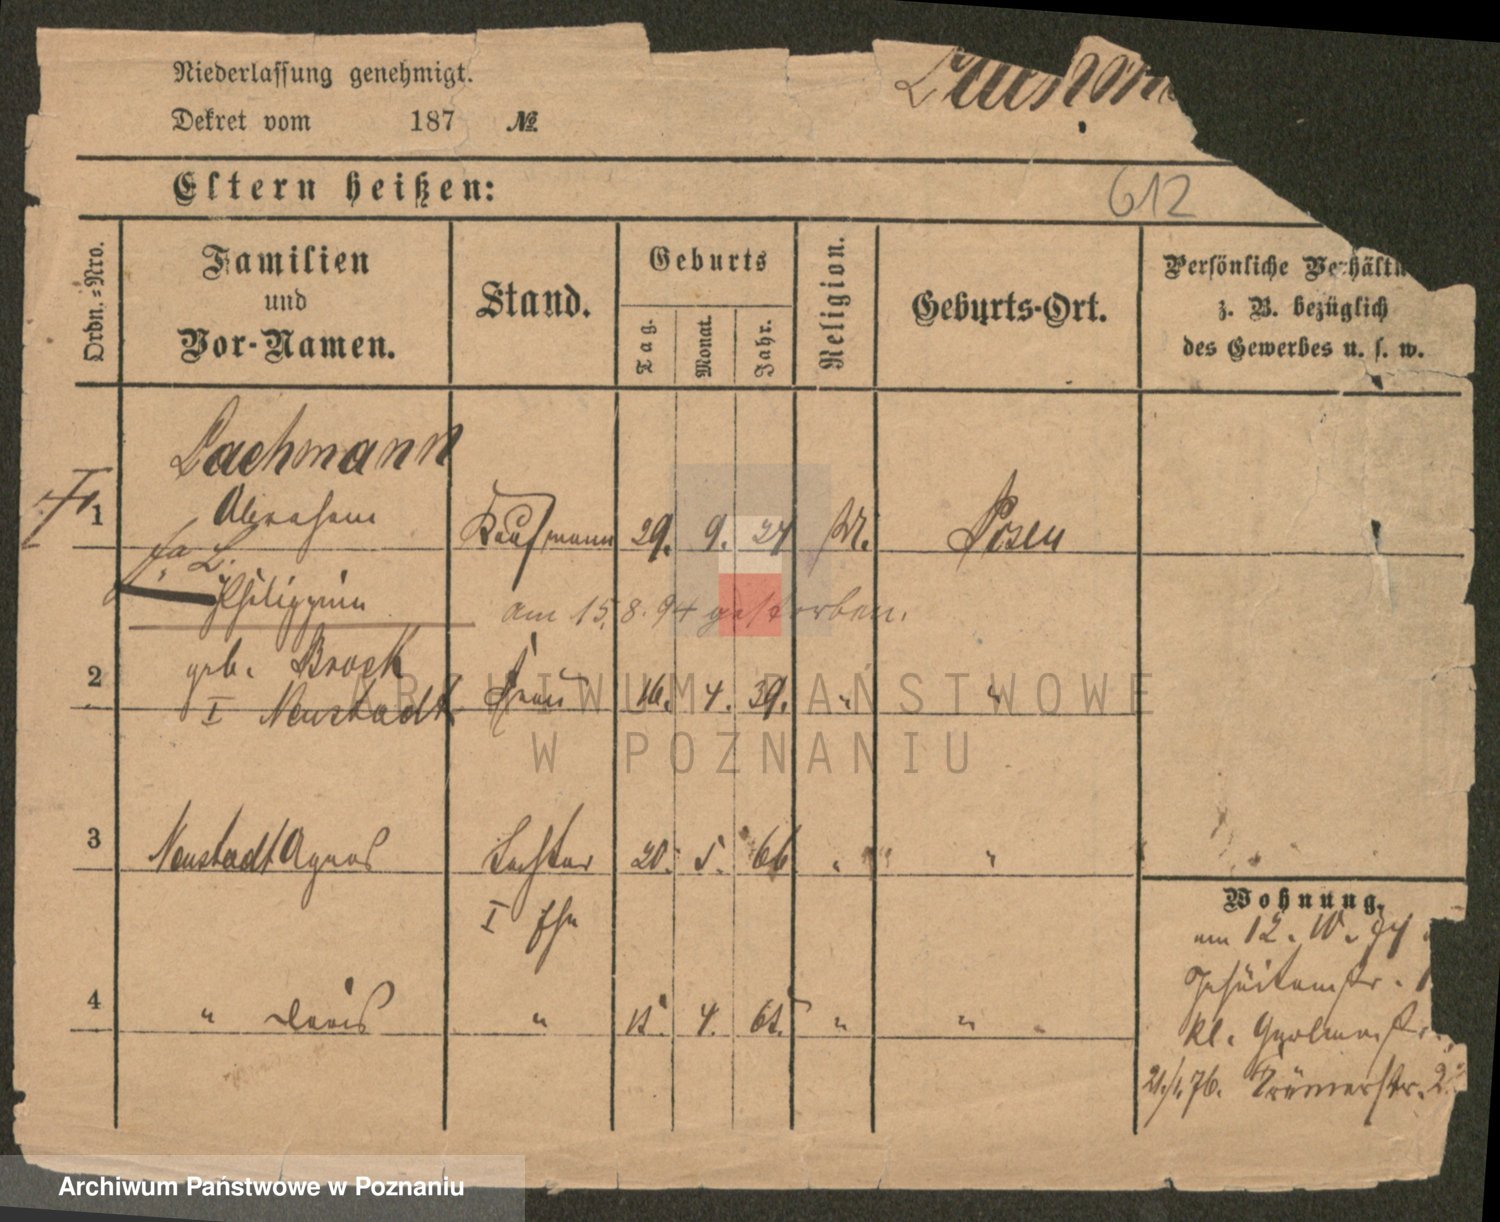 Niederlassung genehmigt.
Dekret vom 187 №
Eltern heißen:
612
Ordn.=Nro.
Familien
und
Vor-Namen.
Stand.
Geburts
Tag.
Monat.
Jahr.
Religion.
Geburts-Ort.
Persönliche
z. B. bezüglich
des Gewerbes u. s. w.
Lachmann
1 Abraham Kaufmann 29. 9. 27 M. Posen
Philippine
am 15.8.94 gestorben.
geb. Brock
2 Frau 16. 4. 39. " "
I Neustadt
3 Neustadt Agnes Tochter 20. 5. 66 " "
I Ehe
4 " " 4. " "
Wohnung.
am 12. 10. 74
Jesuitenstr.
kl. Gerberstr.
21/1.76. Krämerstr.
ARCHIWUM PAŃSTWOWE
W POZNANIU
Archiwum Państwowe w Poznaniu